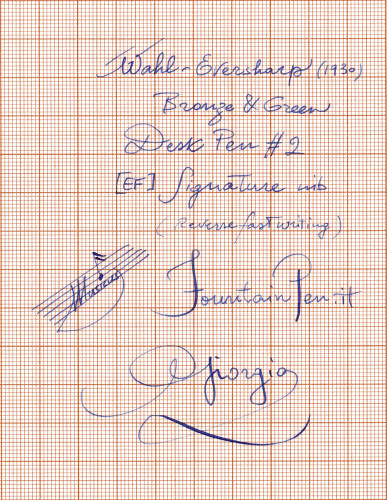 Wahl-Eversharp (1930)
Bronze & Green
Desk Pen #2
[EF] Signature nib
(Reverse fast writing)
FountainPen:it
Giorgio